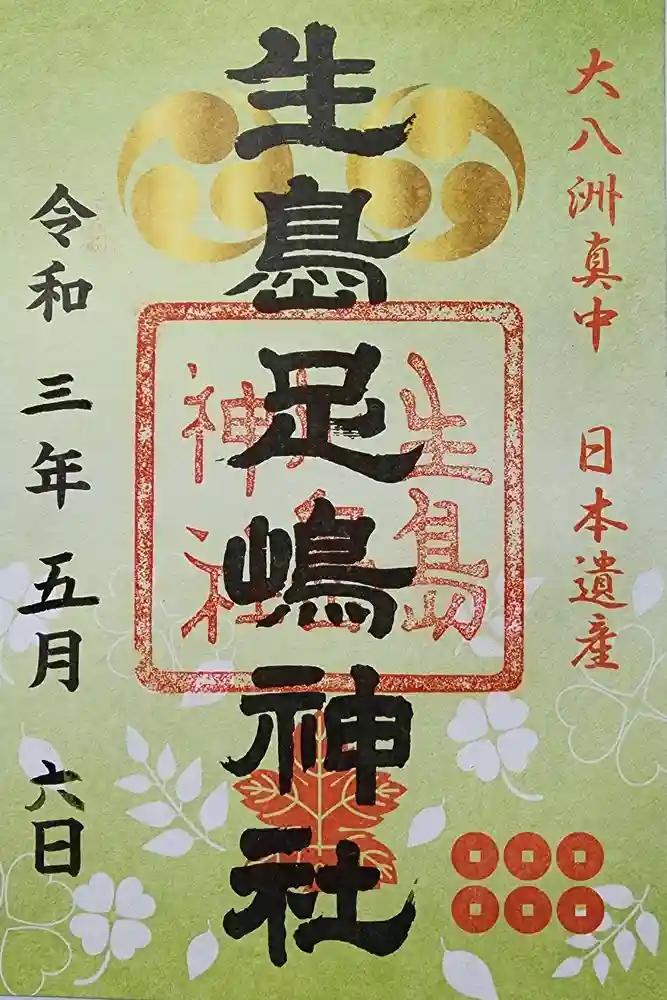 大八洲真中 日本遺産
生島足嶋神社
生島
神社
令和三年五月六日